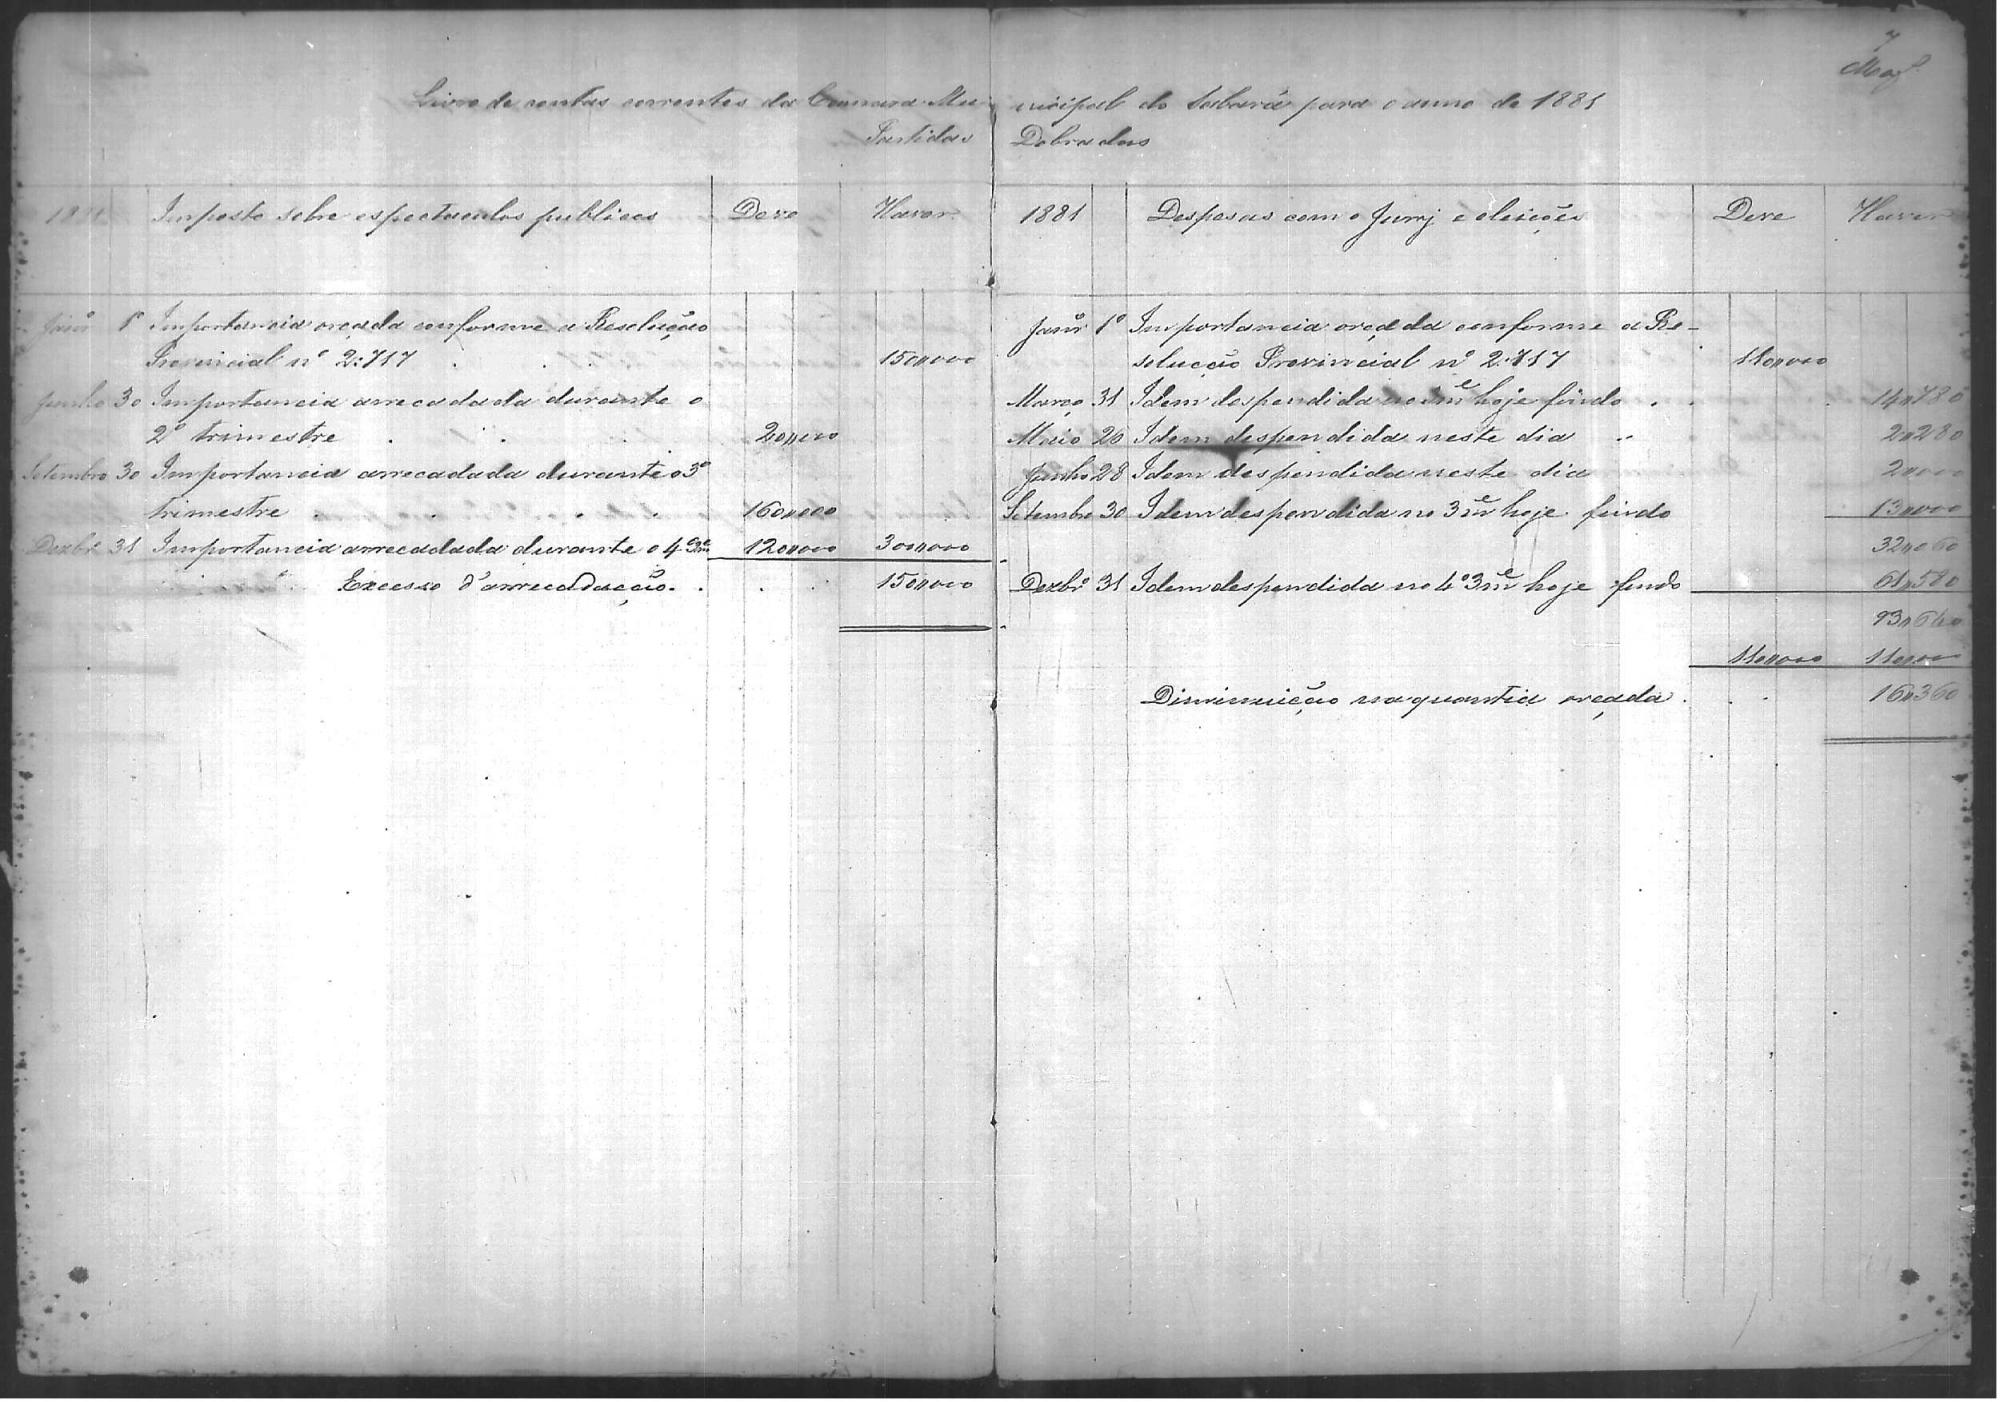 7
Livro de contas correntes da Camara Mu-
nicipal do Sabará para o anno de 1881
Partidas Dobradas
1881 Imposto sobre espectaculos publicos Deve Haver
Janr.º 1º Importancia orçada conforme a Resolução
Provincial nº 2:717 . . . 150"000
Junho 30 Importancia arrecadada durante o
2º trimestre . . . . 20"000
Setembro 30 Importancia arrecadada durante o 3º
trimestre . . . . 160"000
Dezbrº 31 Importancia arrecadada durante o 4º 3me 120"000 300"000
Excesso d'arrecadação . . . . 150"000
1881 Despesas com o Jury e eleições Deve Haver
Janrº 1º Importancia orçada conforme a Re-
solucção Provincial nº 2:717 110"000
Março 31 Idem despendida no 3me hoje findo . . . 14"780
Maio 20 Idem despendida neste dia .. 2"280
Junho 28 Idem despendida neste dia 2"000
Setembro 30 Idem despendida no 3me hoje findo 13"000
32"060
Dezbrº 31 Idem despendida no 4º 3me hoje findo 61"580
93"640
110"000 110"000
Diminuição na quantia orçada . . . 16"360